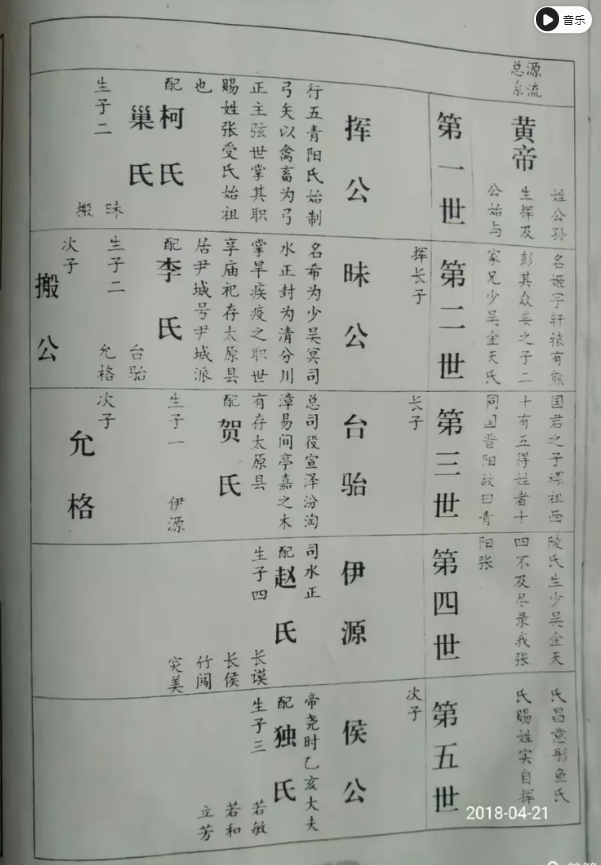 音乐
源流
总系
黄帝
姓公孙名姬字轩辕有熊国君之子嫘祖西陵氏生少吴金天氏昌意彤鱼氏
生挥及彭其众妾之子二十有五得姓者十四不及尽录我张氏赐姓实自挥
公始与家兄少吴金天氏同国晋阳故曰青阳张
第一世
挥公
行五青阳氏始制
弓矢以禽畜为弓
正主弦世掌其职
赐姓张受氏始祖
也
配柯氏
巢氏
生子二
昧
搬
第二世
挥长子
昧公
名布为少吴冥司
水正封为清分川
掌旱疾疫之职世
享庙祀存太原县
居尹城号尹城派
配李氏
生子二
台骀
允格
次子
搬公
第三世
长子
台骀
总司役宣泽汾洮
漳易间亭嘉之木
有存太原县
配贺氏
生子一
伊源
次子
允格
第四世
伊源
司水正
配赵氏
生子四
长谟
长侯
竹闯
突美
第五世
次子
侯公
帝尧时乙亥大夫
配独氏
生子三
若敏
若和
立芳
2018-04-21